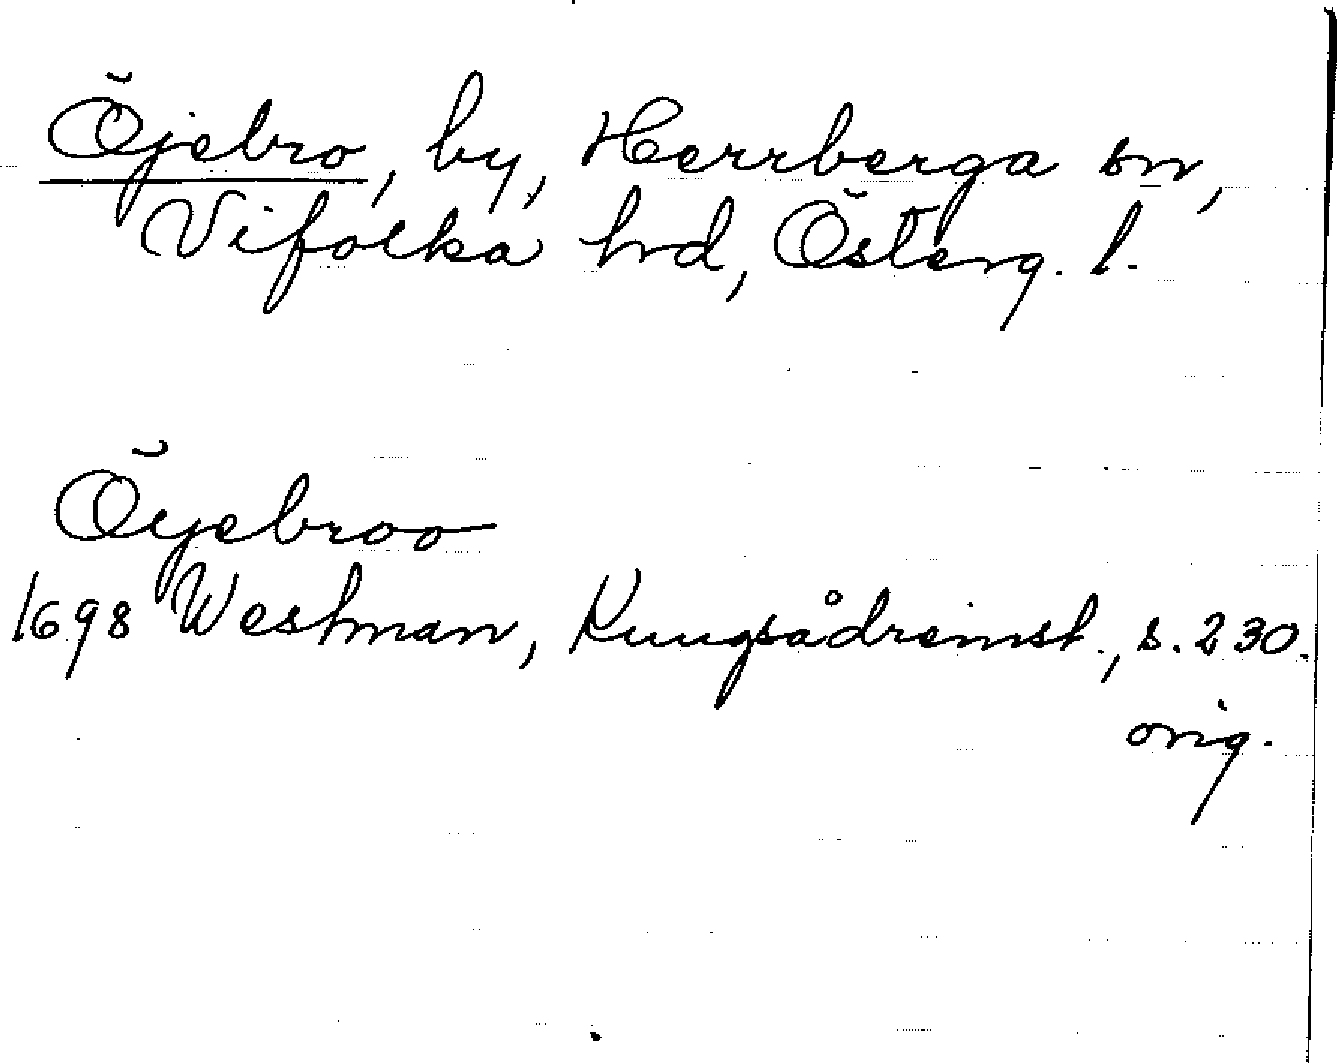 Öjebro, by, Herrberga sn,
Vifolka hrd, Österg. l.
Öyebroo
1698 Westman, Kungsådreinst., s. 230.
orig.